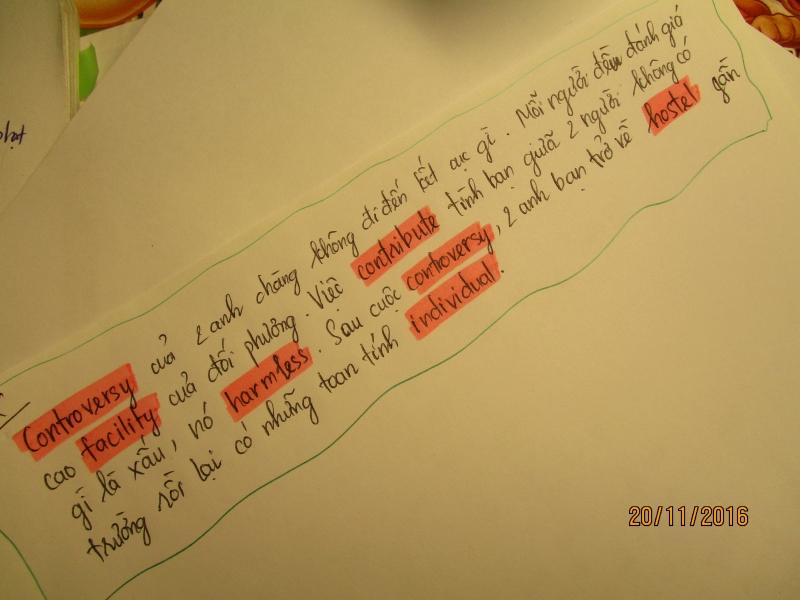 Controversy của 2 anh chàng không đi đến kết cục gì. Mỗi người đều đánh giá
cao facility của đối phương. Việc contribute tình bạn giữa 2 người không có
gì là xấu, nó harmless. Sau cuộc controversy, 2 anh bạn trở về hostel gần
trường rồi lại có những toan tính individual.
20/11/2016